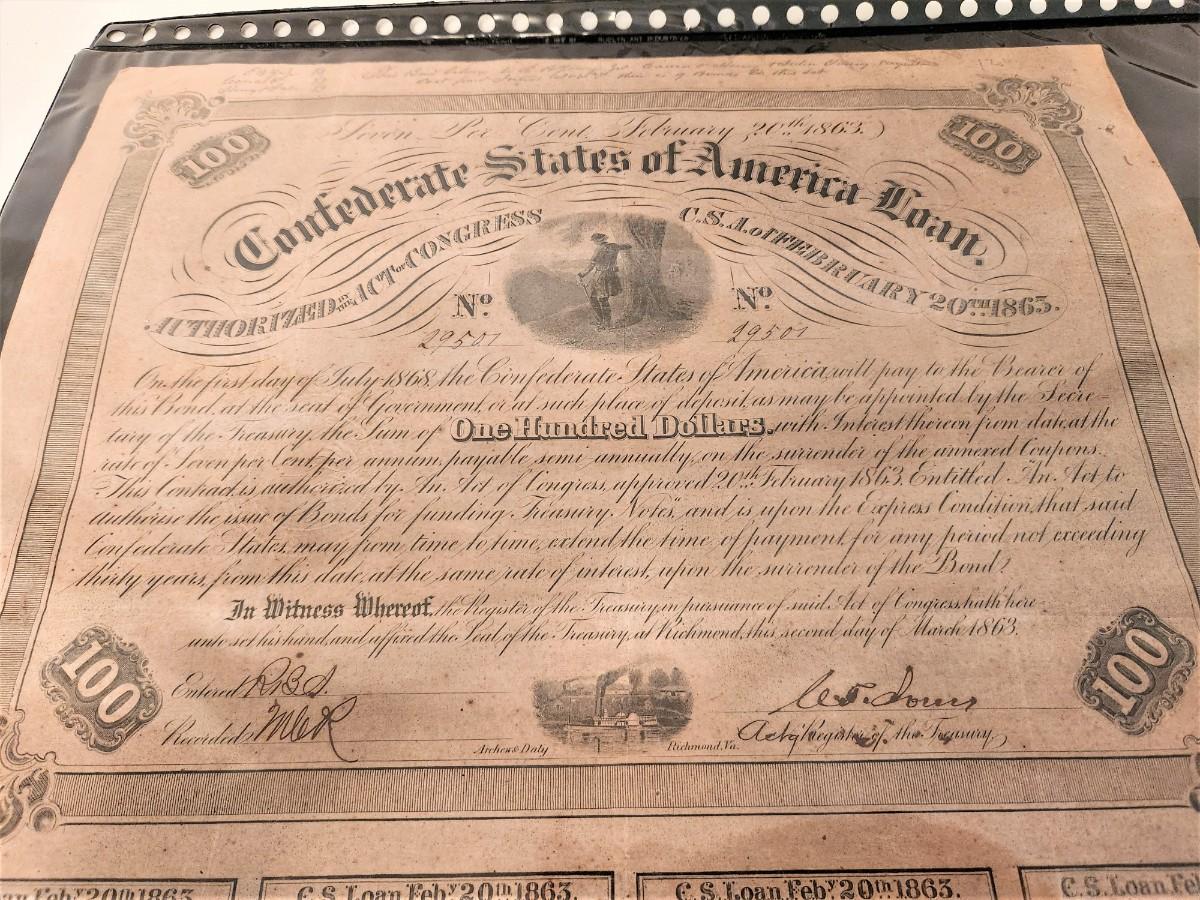 100
Seven Per Cent. February 20th 1863.
100
Confederate States of America Loan.
AUTHORIZED BY THE ACT OF CONGRESS C.S.A. of FEBRUARY 20TH 1863.
No No
29501 29501
On the first day of July 1868, the Confederate States of America, will pay to the Bearer of
this Bond, at the seat of Government, or at such place of deposit, as may be appointed by the Secre-
tary of the Treasury, the Sum of One Hundred Dollars. with Interest thereon from date, at the
rate of Seven per Cent, per annum, payable semi-annually, on the surrender of the annexed Coupons.
This Contract is authorized by An Act of Congress, approved 20th February 1863, Entitled "An Act to
authorise the issue of Bonds for funding Treasury Notes," and is upon the Express Condition, that said
Confederate States, may from time to time, extend the time of payment, for any period not exceeding
thirty years, from this date, at the same rate of interest, upon the surrender of the Bond.
In Witness Whereof, the Register of the Treasury, in pursuance of said Act of Congress, hath here-
unto set his hand, and affixed the Seal of the Treasury, at Richmond, this second day of March 1863.
100
100
Entered
Recorded
Actg Register of the Treasury
Archer & Daly Richmond, Va.
20th 1863
C.S. Loan Feby 20th 1863.
C.S. Loan Feby 20th 1863.
C.S. Loan Fe